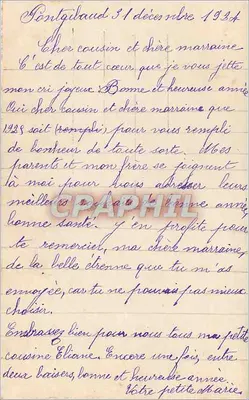 Pontgibaud 31 décembre 1924
Cher cousin et chère marraine
C'est de tout cœur que je vous jette
mon cri joyeux Bonne et heureuse année
Oui cher cousin et chère marraine que
1925 soit rempli pour vous rempli
de bonheur de toute sorte. Mes
parents et mon frère se joignent
à moi pour vous adresser leurs
meilleurs bonne année,
bonne santé. J'en profite pour
te remercier, ma chère marraine,
de la belle étrenne que tu m'as
envoyée, car tu ne pouvais pas mieux
choisir.
Embrassez bien pour nous tous ma petite
cousine Eliane. Encore une fois, entre
deux baisers, bonne et heureuse année.
Votre petite Marie
CPAPHIL